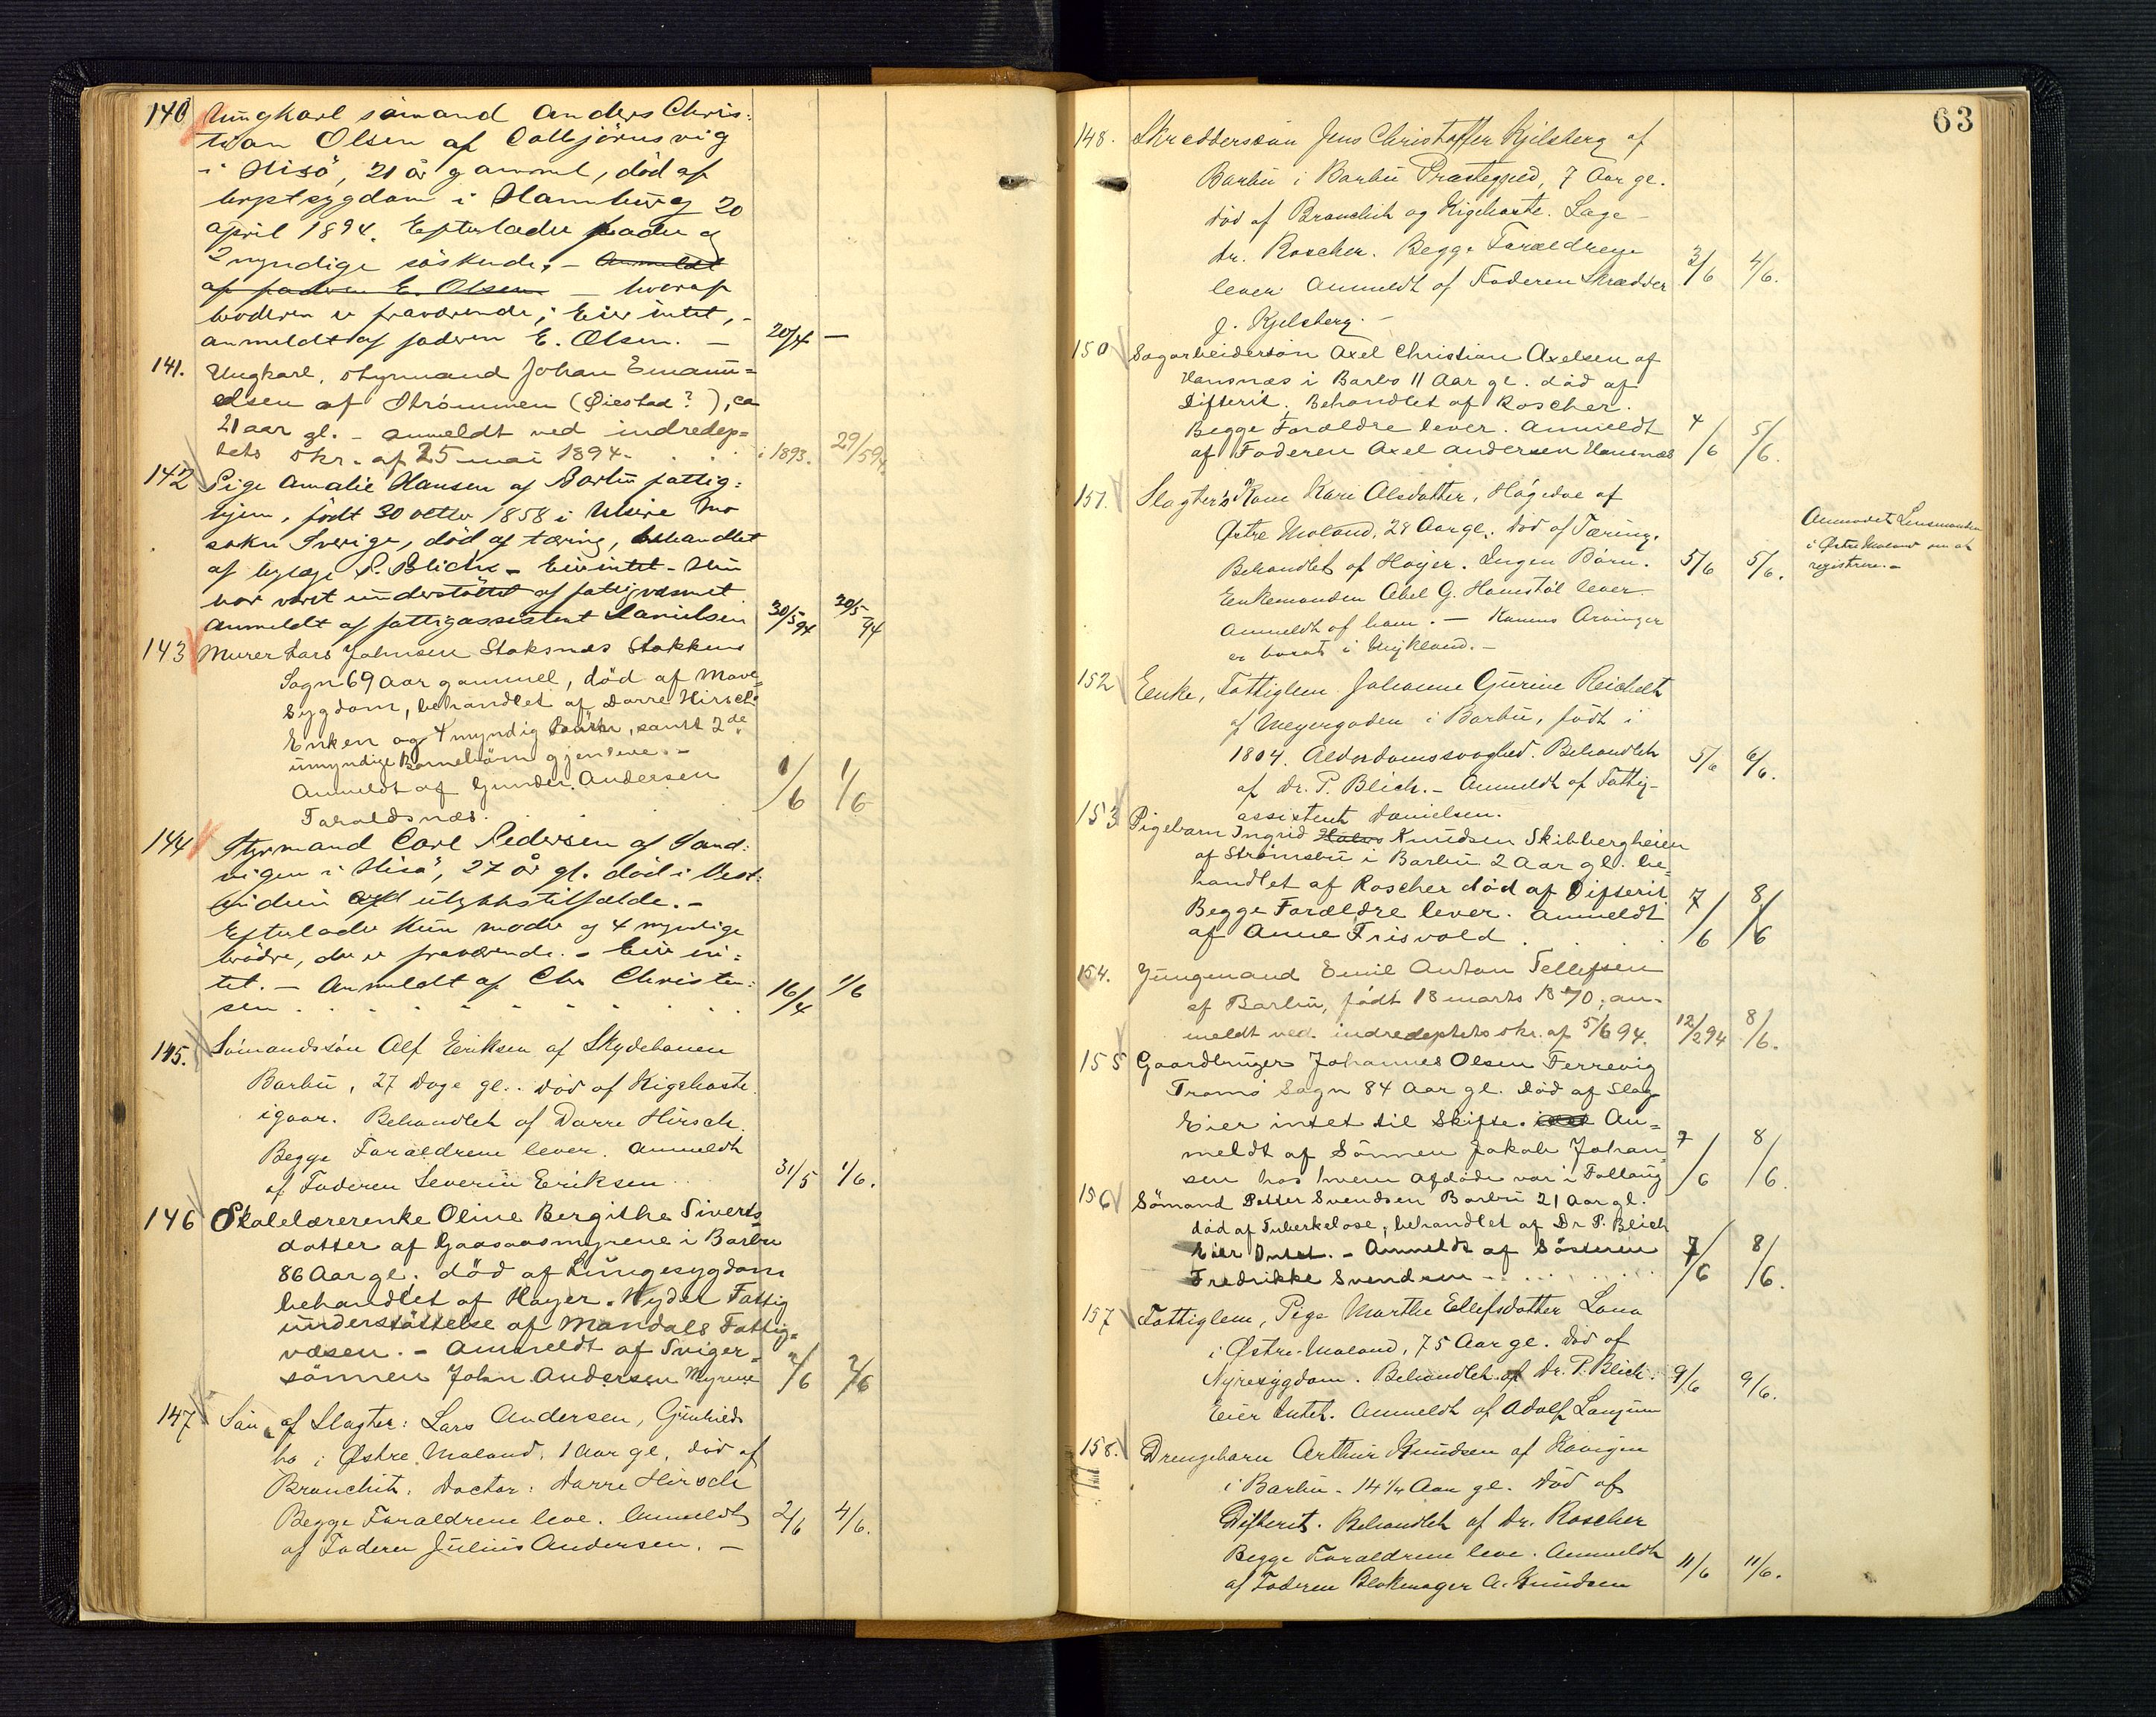 140 Ungkarl sömand Anders Chris:
tian Olsen af Colbjörnsvig
i Hisö, 21 år gammel, död af
brystsygdom i Hamburg 20
april 1894. Efterlader fader og
2 myndige söskende, – Anmeldt
af faderen E. Olsen – hvoraf
broderen er fraværende; Eier intet, –
anmeldt af faderen E. Olsen. – 20/4 –
141. Ungkarl, styrmand Johan Emanu=
elsen af Strömmen (Øiestad?), ca
21 aar gl. – anmeldt ved indredep=
tets skr. af 25 mai 1894. i 1893. 29/5 94
142 Pige Amalie Hansen af Barbu fattig:
hjem, født 30 octbr 1858 i
sokn Sverige, død af tæring, behandlet
af læge P. Blich – Eier intet – Hun
har været understöttet af fattigvæsenet
Anmeldt af fattigassistent Danielsen 30/5 94 30/5 94
143 Murer Lars Johnsen Staksnæs Stokkens
Sogn 69 Aar gammel, död af Mave=
sygdom, behandlet af Dorre Hirsch.
Enken og 4 myndig Börn, samt 2de
umyndige Barnebörn gjenleve. –
Anmeldt af Gunder Andersen
Taraldsnæs. 1/6 1/6
144 Styrmand Carl Pedersen af Sand:
vigen i Hisö, 27 år gl. död i Vest:
indien ulykkestilfælde. –
Efterlader kun moder og 4 myndige
brödre, der er fraværende. – Eier in:
tet. – Anmeldt af Chr Christen:
sen 16/4 1/6
145. Sömandssön Alf Eriksen af Skydebanen
Barbu, 27 Dage gl. död af Kighoste
igaar. Behandlet af Dorre Hirsch.
Begge Forældrene lever. Anmeldt
af Faderen Severin Eriksen 31/5 1/6.
146 Skolelærerenke Oline Bergithe Siverts=
datter af Gaasaasmyrene i Barbu
86 Aar gl; död af Lungesygdom
behandlet af Høyer. Nyder Fattig
understöttelse af Mandals Fattig=
væsen. – Anmeldt af Sviger=
sönnen John Andersen Myrene 2/6 2/6
147 Sön af Slagter: Lars Andersen,
bo i Østre Moland, 1 Aar gl, död af
Bronchit. Doctor: Dorre Hirsch
Begge Forældrene leve. Anmeldt
af Faderen Julius Andersen. – 2/6 4/6.
63
148. Skræddersøn Jens Christoffer Kjelsberg af
Barbu i Barbu Præstegjeld, 7 Aar gl.
död af Bronchit og Kighoste. Læge –
Dr. Roscher. Begge Forældrene
lever. Anmeldt af Faderen Skrædder 3/6 4/6.
J. Kjelsberg. –
150 Sagarbeidersön Axel Christian Axelsen af
Hansnæs i Barbo 11 Aar gl. död af
Difterit. Behandlet af Roscher.
Begge Forældre lever. Anmeldt
af Faderen Axel Andersen Hansnæs 4/6 5/6.
151. Slagter's Kone Kari Olsdatter, Högedal af
Østre Moland, 28 Aar gl. død af Tæring.
Behandlet af Høyer. Ingen Börn. 5/6 5/6.
Enkemanden Abel G. Homstöl lever
Anmeldt af ham. – Konens Arvinger
er bosat i Mykland. –
Anmodet Lensmanden
i Østre Moland om at
registrere. –
152 Enke, Fattiglem Johanne Gurine Reichelt
af Meyergaden i Barbu, født i
1804. Alderdomssvaghed. Behandlet 5/6 6/6.
af Dr. P. Blich. – Anmeldt af Fattig–
assistent Danielsen.
153 Pigebarn Ingrid Knudsen Skibbergheien
af Strömsbu i Barbu 2 Aar gl. be=
handlet af Roscher död af Difterit
Begge Forældre lever. Anmeldt
af Anne Frisvold 7/6 8/6
154. Jungmand Emil Anton Tellefsen
af Barbu, født 18 marts 1870, an=
meldt ved indredeptets skr. af 5/6 94. 12/2 94 8/6.
155 Gaardbruger Johannes Olsen Færrevig
Tromö Sogn 84 Aar gl. Död af Slag
Eier intet til Skifte. An=
meldt af Sönnen Jakob Johan=
sen hos hvem Afdöde var i Follaug 7/6 8/6
156 Sömand Petter Svendsen Barbu 21 Aar gl.
död af Tuberkelose, behandlet af Dr P. Blich
Eier Intet. – Anmeldt af Söstren
Fredrikke Svendsen – 7/6 8/6.
157 Fattiglem, Pige Marthe Ellefsdatter Lona
i Østre-Moland, 75 Aar gl. död af
Nyresygdom. Behandlet af Dr. P. Blich. 9/6 9/6.
Eier Intet. Anmeldt af Adolf Langum
158. Drengebarn Arthur Knudsen af Kavigen
i Barbu – 14 1/4 Aar gl. död af
Difterit. Behandlet af Dr. Roscher
Begge Forældrene leve. Anmeldt
af Faderen Blokmager A. Knudsen 11/6 11/6.